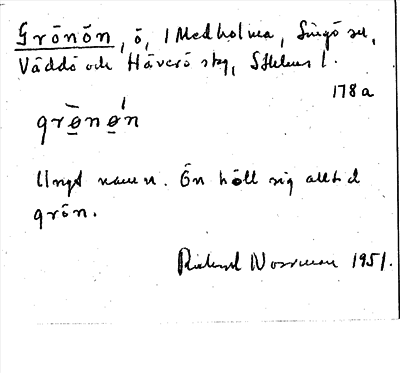 Grönön, ö, i Medholma, Singö sn,
Väddö och Häverö skg, Sthlms l.
178a
grø̠̀nǿ̠n
Ungt namn. Ön höll sig alltid
grön.
Rickard Norrman 1951.